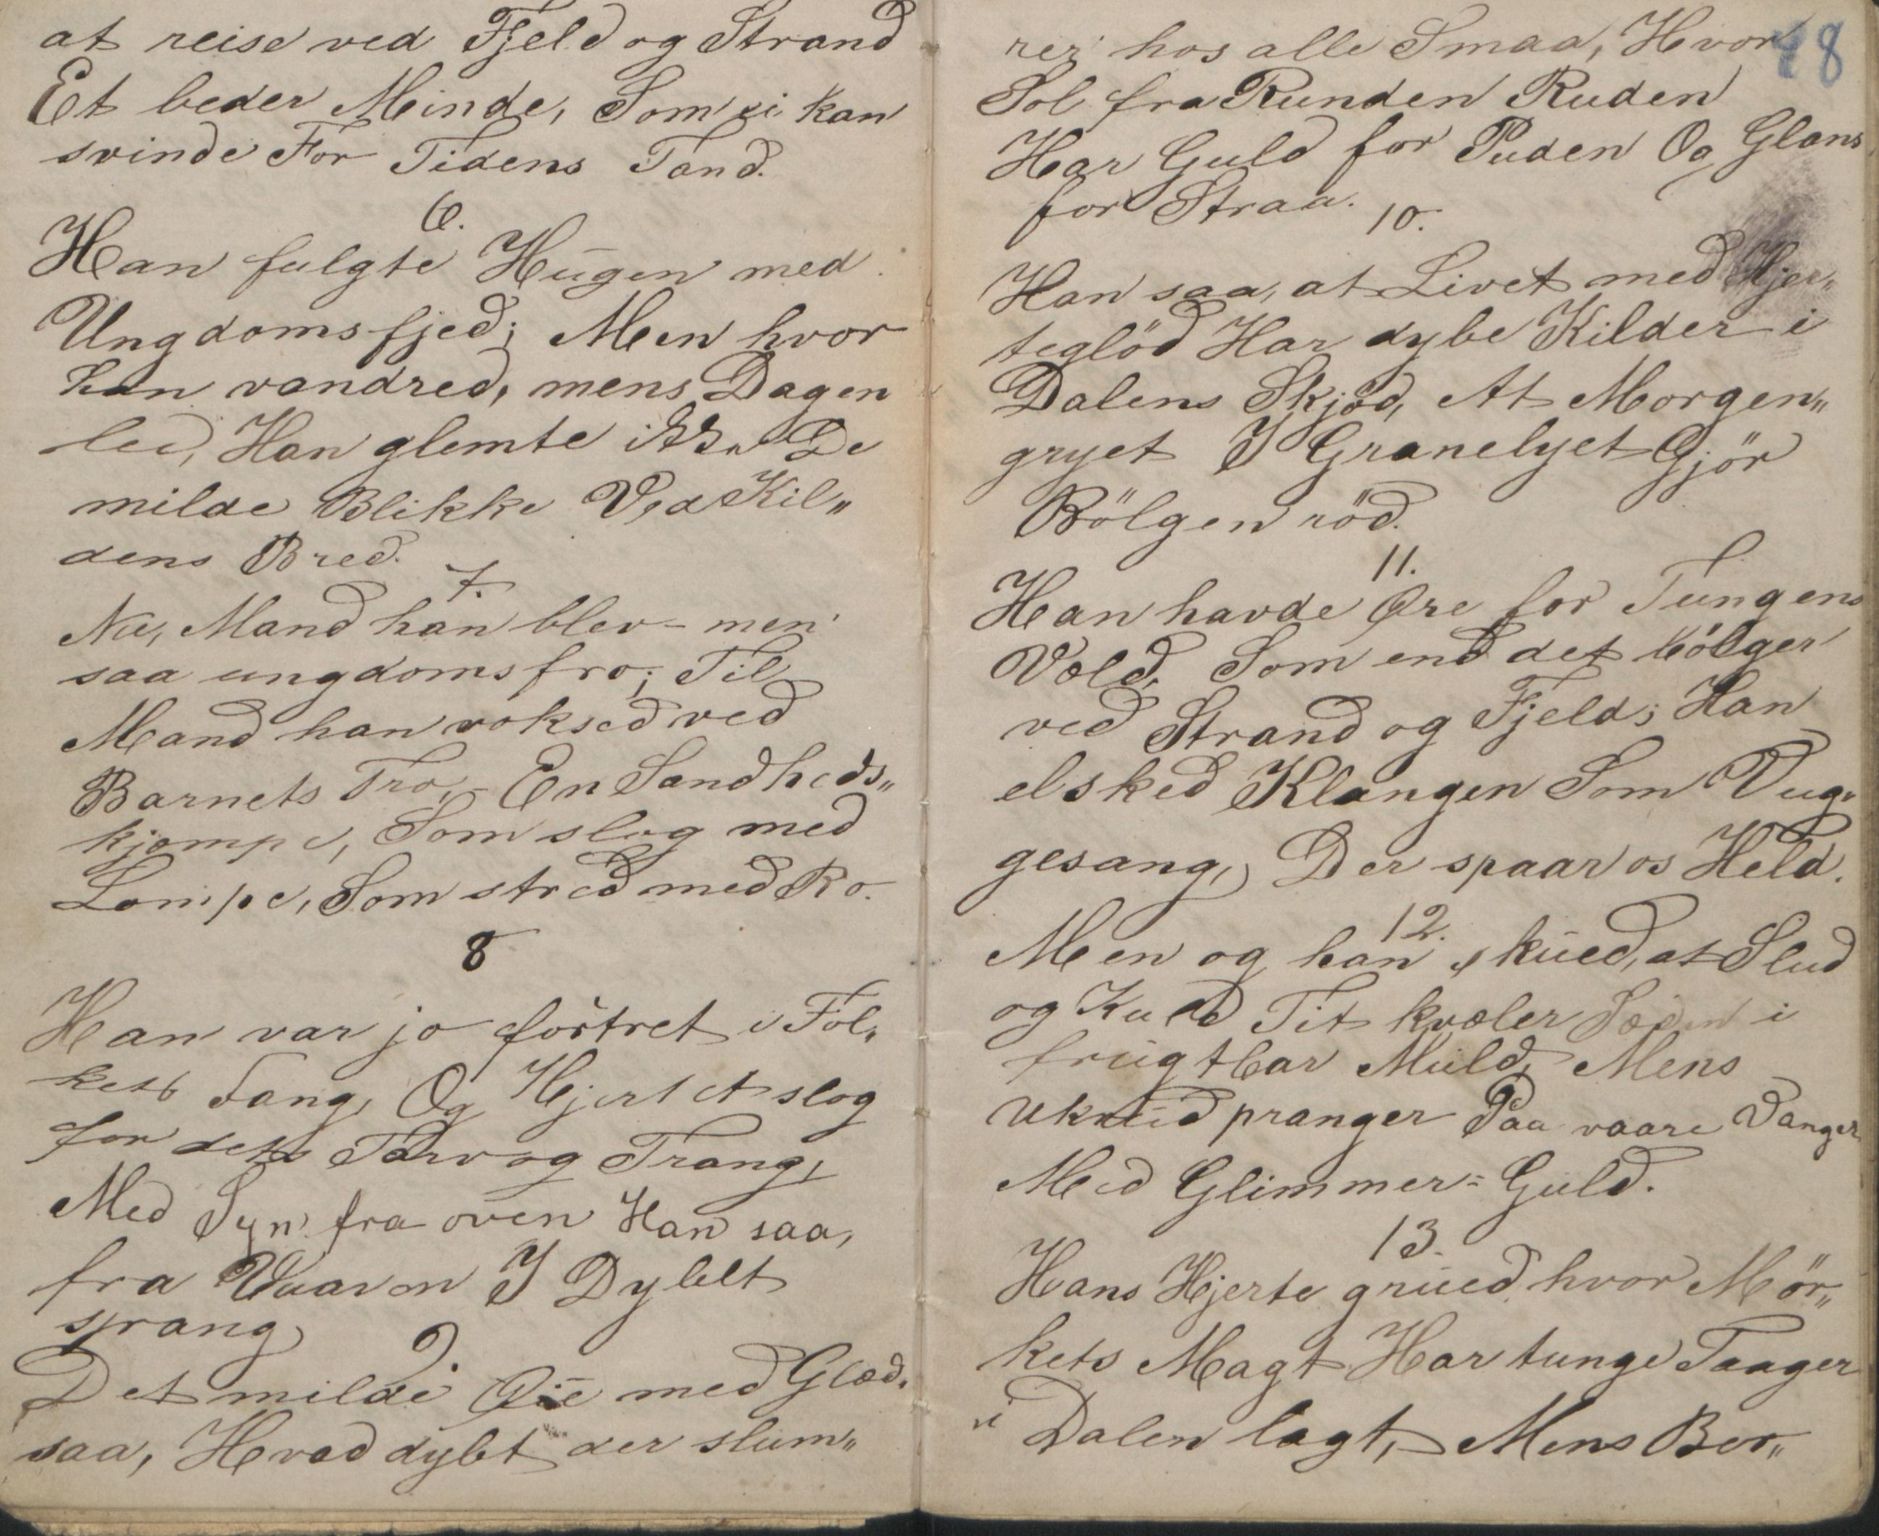 at reise ved Fjeld og Strand
Et beder Minde, Som ei kan
svinde For Tidens Tand.
6.
Han fulgte Hugen med
Ungdomsfjed; Men hvor
han vandred, mens Dagen
led, Han glemte ikke De
milde Blikke Ved Kil„
dens Bred.
7.
Nu, Mand han blev – men
saa ungdomsfro; Til
Mand han voksed ved
Barnets Tro, – En Sandheds„
kjæmpe, Som slog med
Læmpe, Som stred med Ro.
8
Han var jo fòstret i Fol„
kets Fang, Og Hjertet slog
for dets Tarv og Trang,
Med Syn fra oven Han saa,
fra Vaaren I Dybet
sprang
9.
Det milde Øie med Glæd„
saa, Hvad dybt der slum„
48
rer hos alle Smaa, Hvor
Sol fra Runden Ruden
Har Guld for Puden Og Glans
for Straa.
10.
Han saa, at Livet med Hjer„
teglöd Har dybe Kilder i
Dalens Skjød, At Morgen„
gryet I Granelyet Gjör
Bölgen röd.
11.
Han havde Øre for Tungens
Væld, Som end det bölger
ved Strand og Fjeld; Han
elsked Klangen Som Vug„
gesang, Der spaar os Held.
12.
Men og han skued, at Slud
og Kuld Tit kvæler Sæden i
frugtbar Muld, Mens
Ukrud pranger Paa vaare Vanger
Med Glimmer=Guld.
13.
Hans Hjerte grued, hvor Mör„
kets Magt Har tunge Taager
i Dalen lagt, Mens Bor„